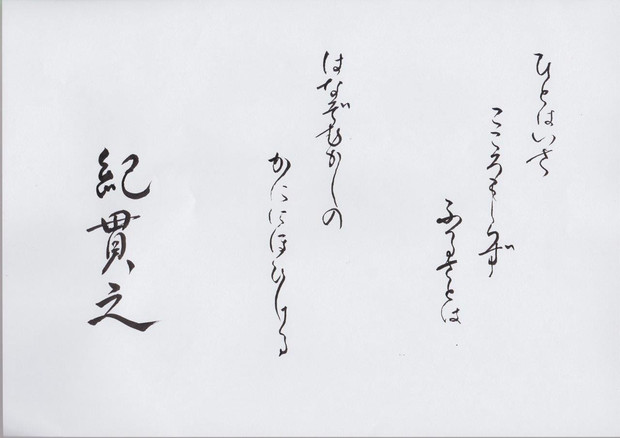 ひとはいさ
こころもしらず
ふるさとは
はなぞむかしの
かににほひける
紀貫之